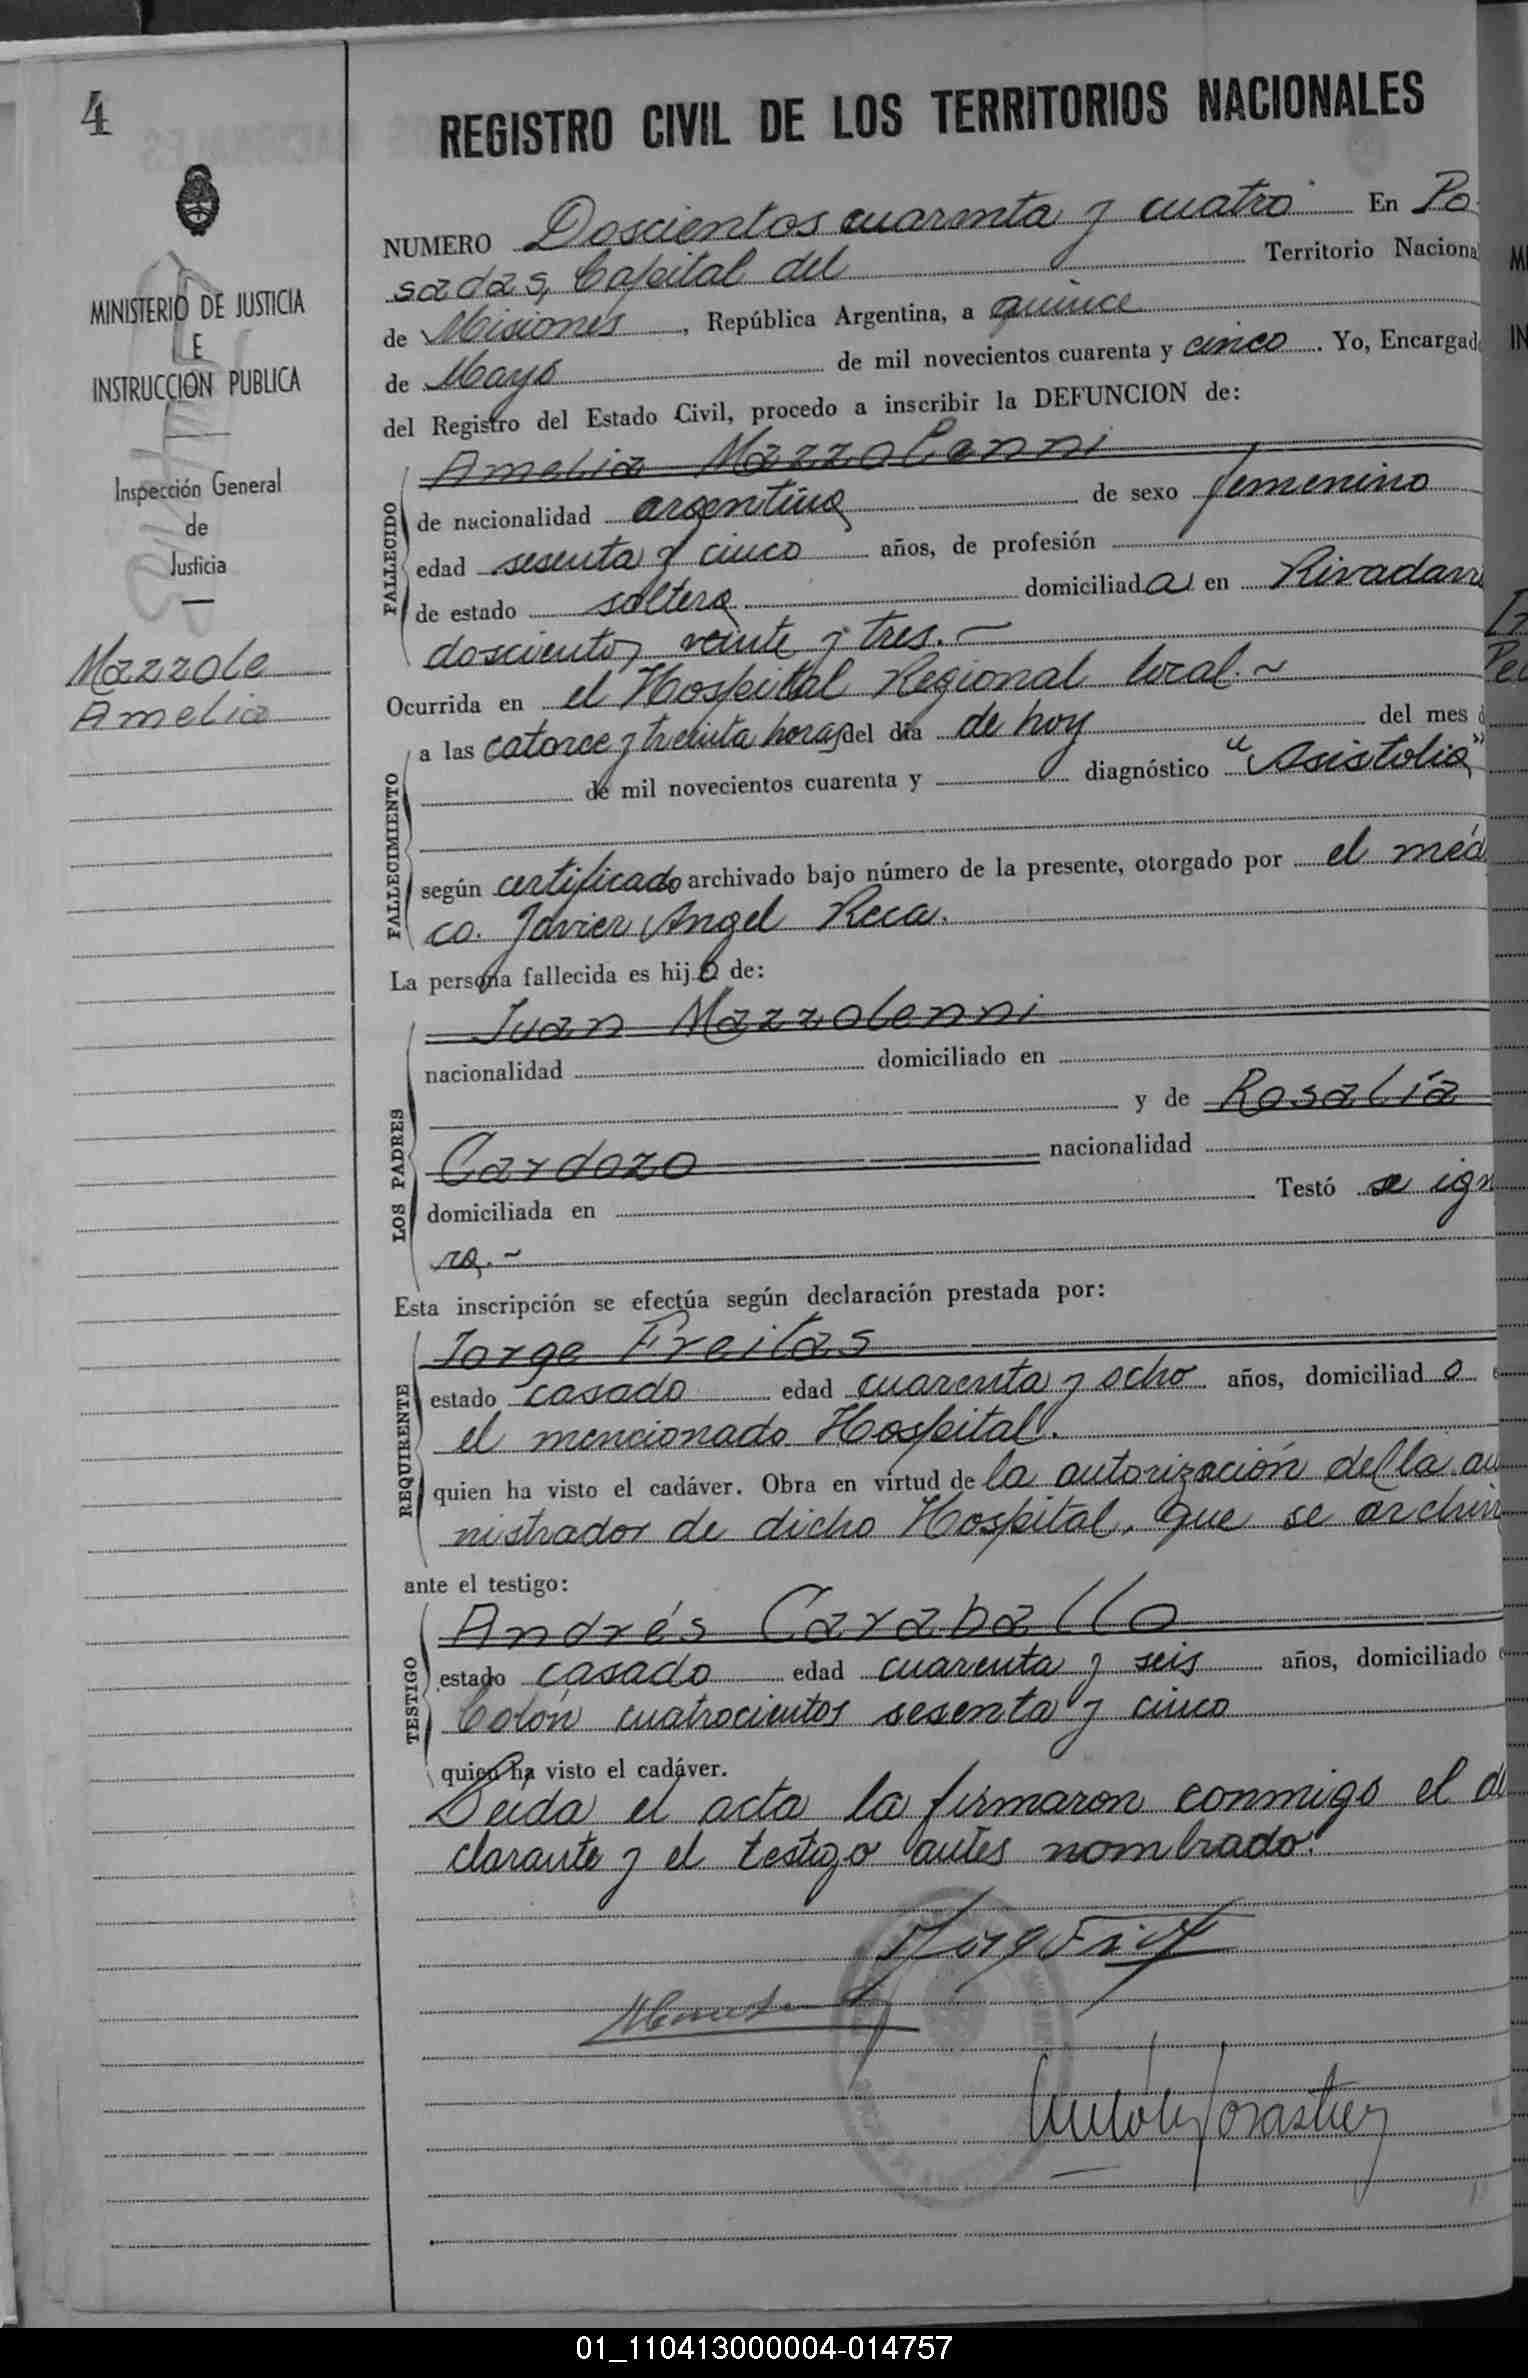 4
REGISTRO CIVIL DE LOS TERRITORIOS NACIONALES
MINISTERIO DE JUSTICIA
E
INSTRUCCION PUBLICA
Inspección General
de
Justicia
Mazzole
Amelia
NUMERO Doscientos cuarenta y cuatro En Po
sadas, Capital del Territorio Naciona
de Misiones, República Argentina, a quince
de Mayo de mil novecientos cuarenta y cinco. Yo, Encargad
del Registro del Estado Civil, procedo a inscribir la DEFUNCION de:
FALLECIDO
Amelia Mazzolenni
de nacionalidad argentina de sexo femenino
edad sesenta y cinco años, de profesión
de estado soltera domiciliada en Rivadavi
doscientos veinte y tres.
Ocurrida en el Hospital Regional local.
FALLECIMIENTO
a las catorce y treinta horas del día de hoy del mes d
de mil novecientos cuarenta y diagnóstico "Asistolia"
según certificado archivado bajo número de la presente, otorgado por el médi
co. Javier Angel Reca.
La persona fallecida es hijo de:
LOS PADRES
Juan Mazzolenni
nacionalidad domiciliado en
y de Rosalía
Cardozo nacionalidad
domiciliada en Testó se igno
ra.
Esta inscripción se efectúa según declaración prestada por:
REQUIRENTE
Jorge Freitas
estado casado edad cuarenta y ocho años, domiciliado e
el mencionado Hospital.
quien ha visto el cadáver. Obra en virtud de la autorización del la
nistrador de dicho Hospital, que se archiv
ante el testigo:
TESTIGO
Andrés Caraballo
estado casado edad cuarenta y seis años, domiciliado e
Colón cuatrocientos sesenta y cinco
quien ha visto el cadáver.
Leída el acta la firmaron conmigo el de
clarante y el testigo antes nombrado.
01_110413000004-014757